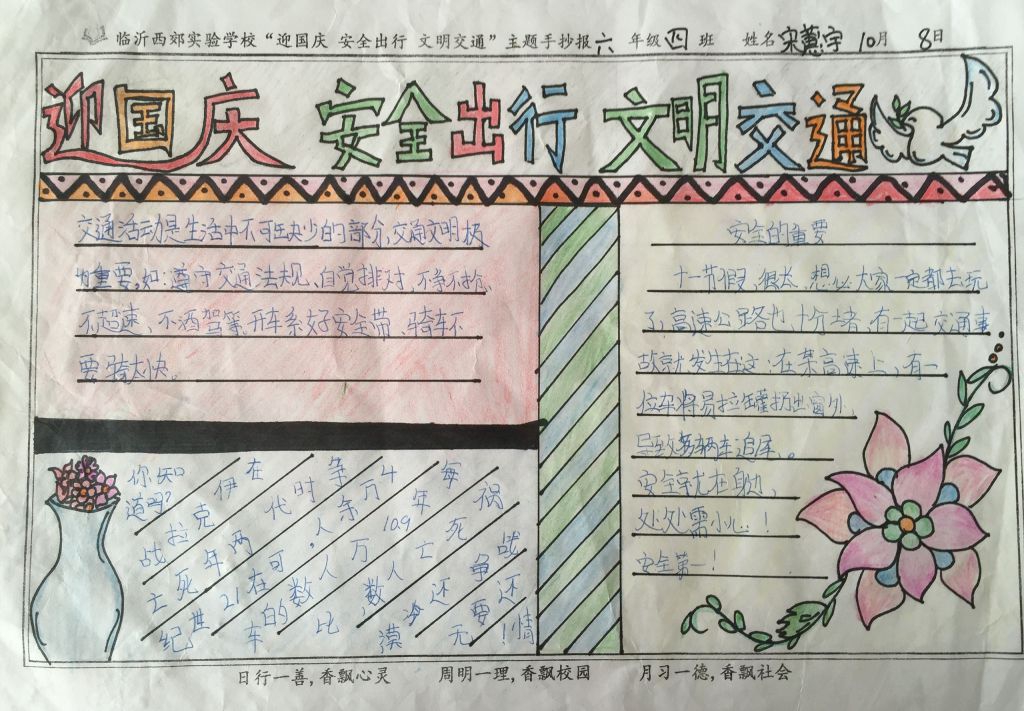 临沂西郊实验学校“迎国庆 安全出行 文明交通”主题手抄报 六 年级 四 班 姓名 宋蕙宇 10月 8日
迎国庆 安全出行 文明交通
交通活动是生活中不可缺少的部分,交通文明极
为重要,如:遵守交通法规、自觉排对、不争不抢、
不超速、不酒驾等,开车系好安全带、骑车不
要骑太快。
你知
道吗?
在伊克拉战
争时代两年死亡
4万条人,可在21世纪
每年109万人数的车
祸死亡人数,比
战争还
还要无
情!
安全的重要
十一节假、很长、想必大家一定都去玩
了,高速公路也十分堵,有一起交通事
故就发生在这:在某高速上,有一
位车将易拉罐扔出窗外,
导致多辆车追尾。
安全就在身边,
处处需小心!
安全第一!
日行一善,香飘心灵 周明一理,香飘校园 月习一德,香飘社会